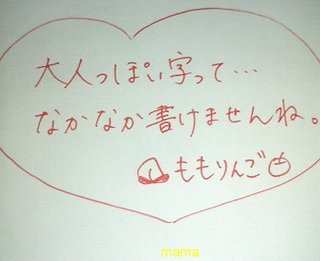 大人っぽい字って…
なかなか書けませんね。
ももりんご
mama